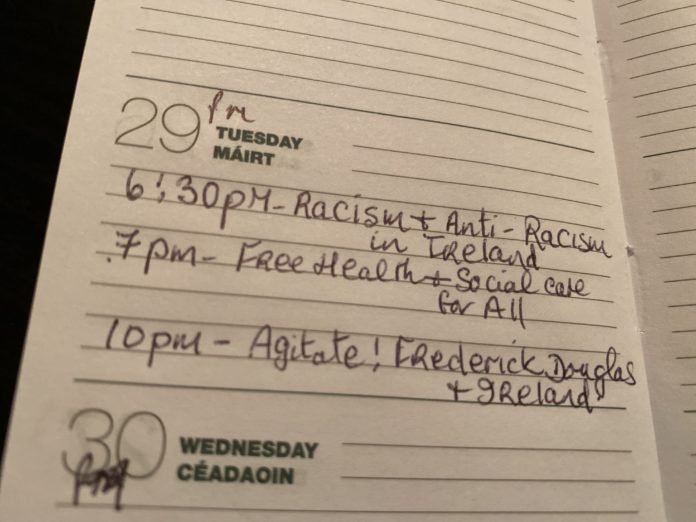 29 pm
TUESDAY
MÁIRT
6:30pm - Racism + Anti-Racism
in Ireland
7pm - Free Health + Social care
for All
10pm - Agitate! Frederick Douglas
+ Ireland
30
WEDNESDAY
CÉADAOIN